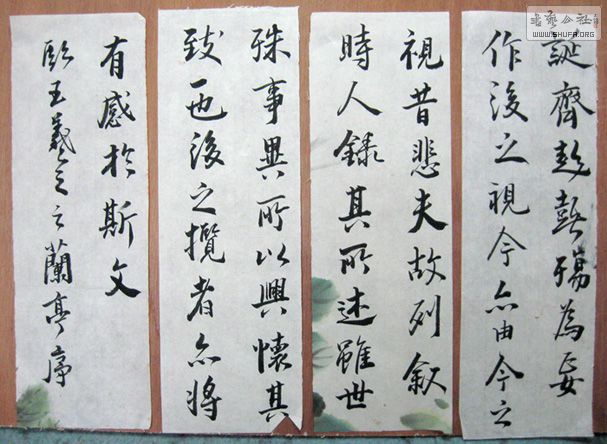 誕齊彭殤為妄
作後之視今亦由今之
視昔悲夫故列敘
時人錄其所述雖世
殊事異所以興懷其
致一也後之攬者亦將
有感於斯文
臨王羲之之蘭亭序
書藝公社
WWW.SHUFA.ORG